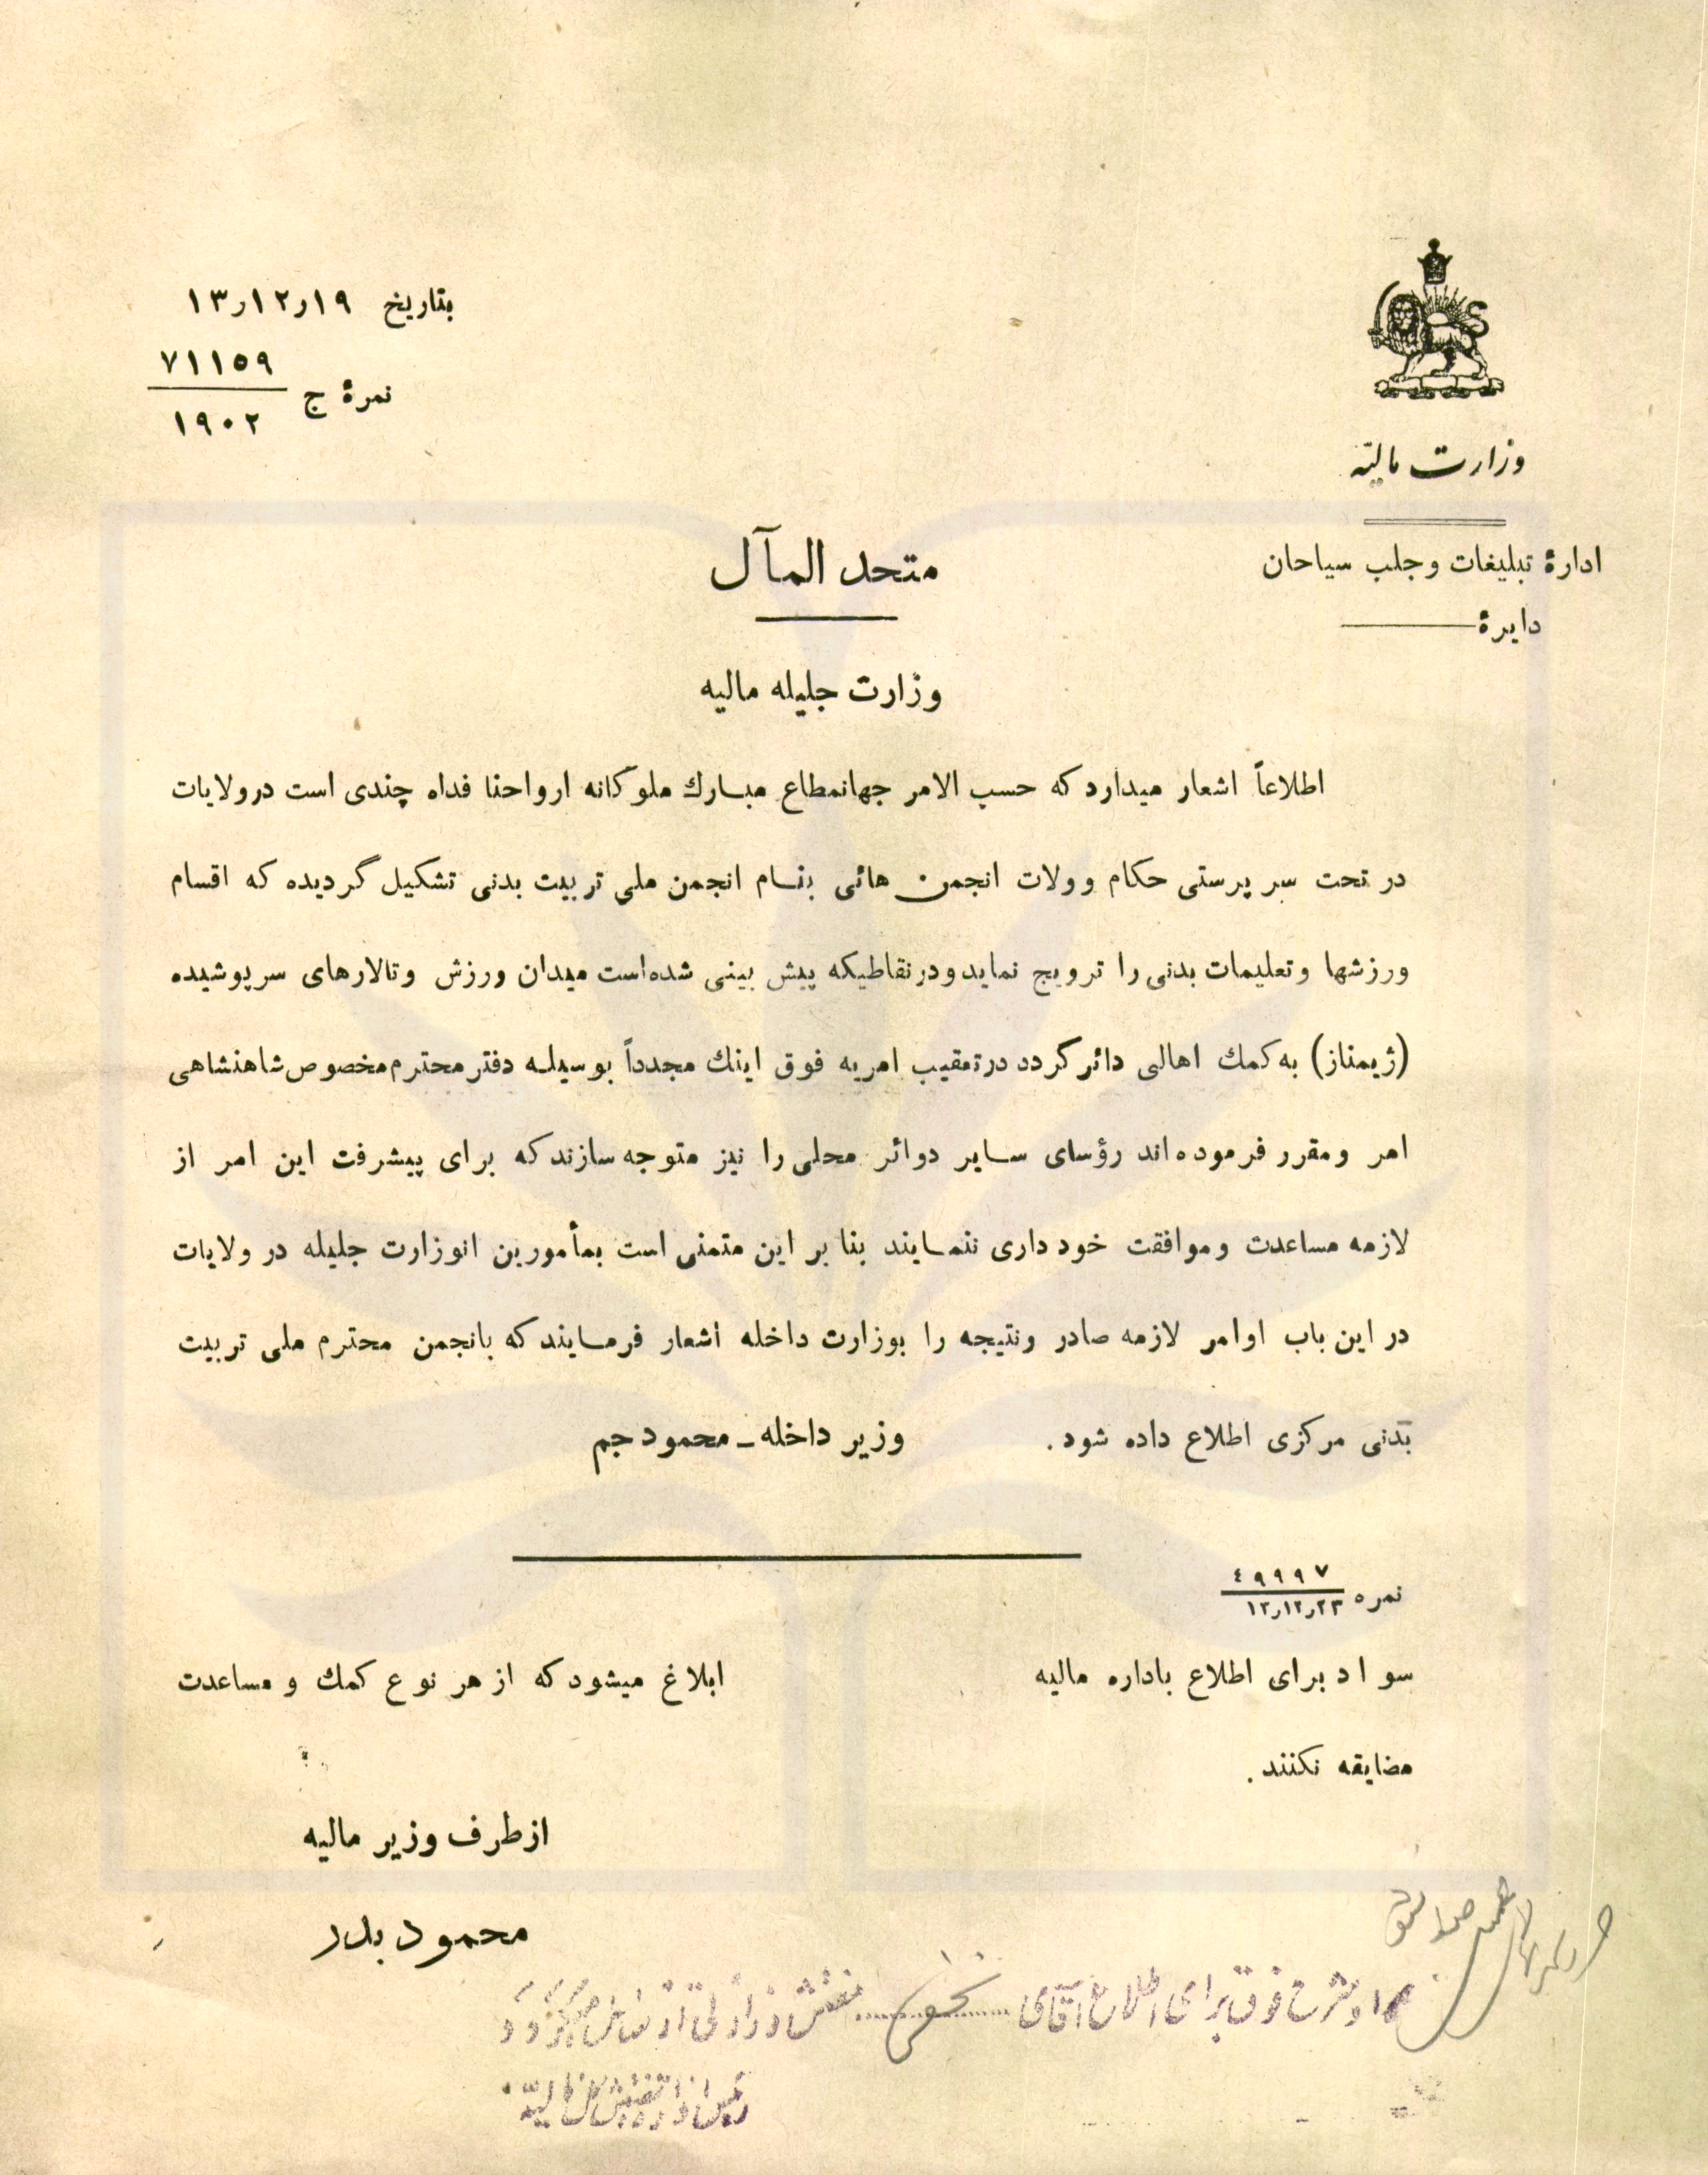 وزارت مالیّه
ادارهٔ تبلیغات و جلب سیاحان
دایرهٔ
بتاریخ ۱۳٫۱۲٫۱۹
نمرهٔ ج ۷۱۱۵۹
۱۹۰۲
متحد المآل
وزارت جلیله مالیه
اطلاعاً اشعار میدارد که حسب الامر جهانمطاع مبارك ملوکانه ارواحنا فداه چندی است در ولایات
در تحت سر پرستی حکام و ولات انجمن هائی بنام انجمن ملی تربیت بدنی تشکیل گردیده که اقسام
ورزشها و تعلیمات بدنی را ترویج نماید و در نقاطیکه پیش بینی شده است میدان ورزش و تالارهای سرپوشیده
(ژیمناز) به کمك اهالی دائر گردد در تعقیب امریه فوق اینك مجدداً بوسیله دفتر محترم مخصوص شاهنشاهی
امر و مقرر فرموده اند رؤسای سایر دوائر محلی را نیز متوجه سازند که برای پیشرفت این امر از
لازمه مساعدت و موافقت خود داری ننمایند بنا بر این متمنی است بمأمورین انوزارت جلیله در ولایات
در این باب اوامر لازمه صادر و نتیجه را بوزارت داخله اشعار فرمایند که بانجمن محترم ملی تربیت
بدنی مرکزی اطلاع داده شود.
وزیر داخله ـ محمود جم
نمره ٤۹۹۹۷
۱۳٫۱۲٫۲۳
سواد برای اطلاع باداره مالیه ابلاغ میشود که از هر نوع کمك و مساعدت
مضایقه نکنند.
از طرف وزیر مالیه
محمود بدر
فوق برای اطلاع آقای مفتش وزارتی
رئیس اداره تفتیش کل مالیّه